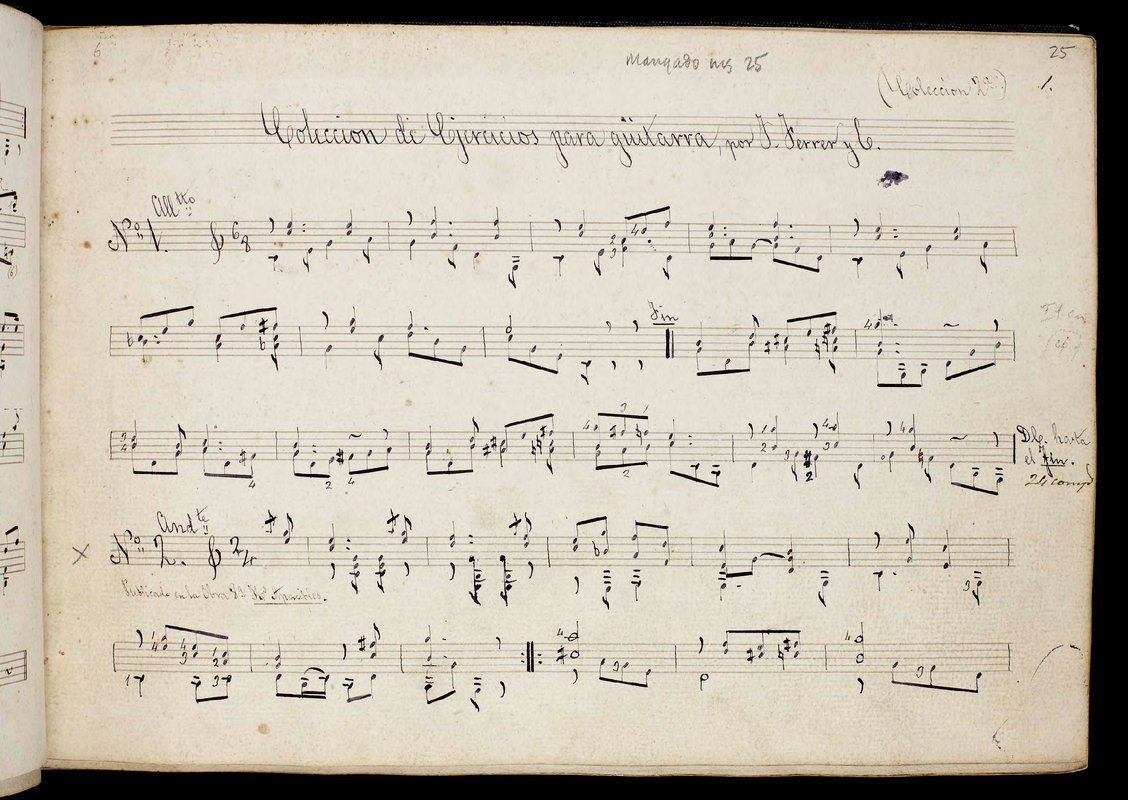 6
25
Mangado ms 25
(Coleccion 2a.) 1.
Coleccion de Ejercicios para güitarra, por J. Ferrer y C.
Alltto
No. 1. 6 8
Fin
D.C. hasta
el Fin.
24 comp
Andte
No. 2. 2/4
Publicado en la Obra